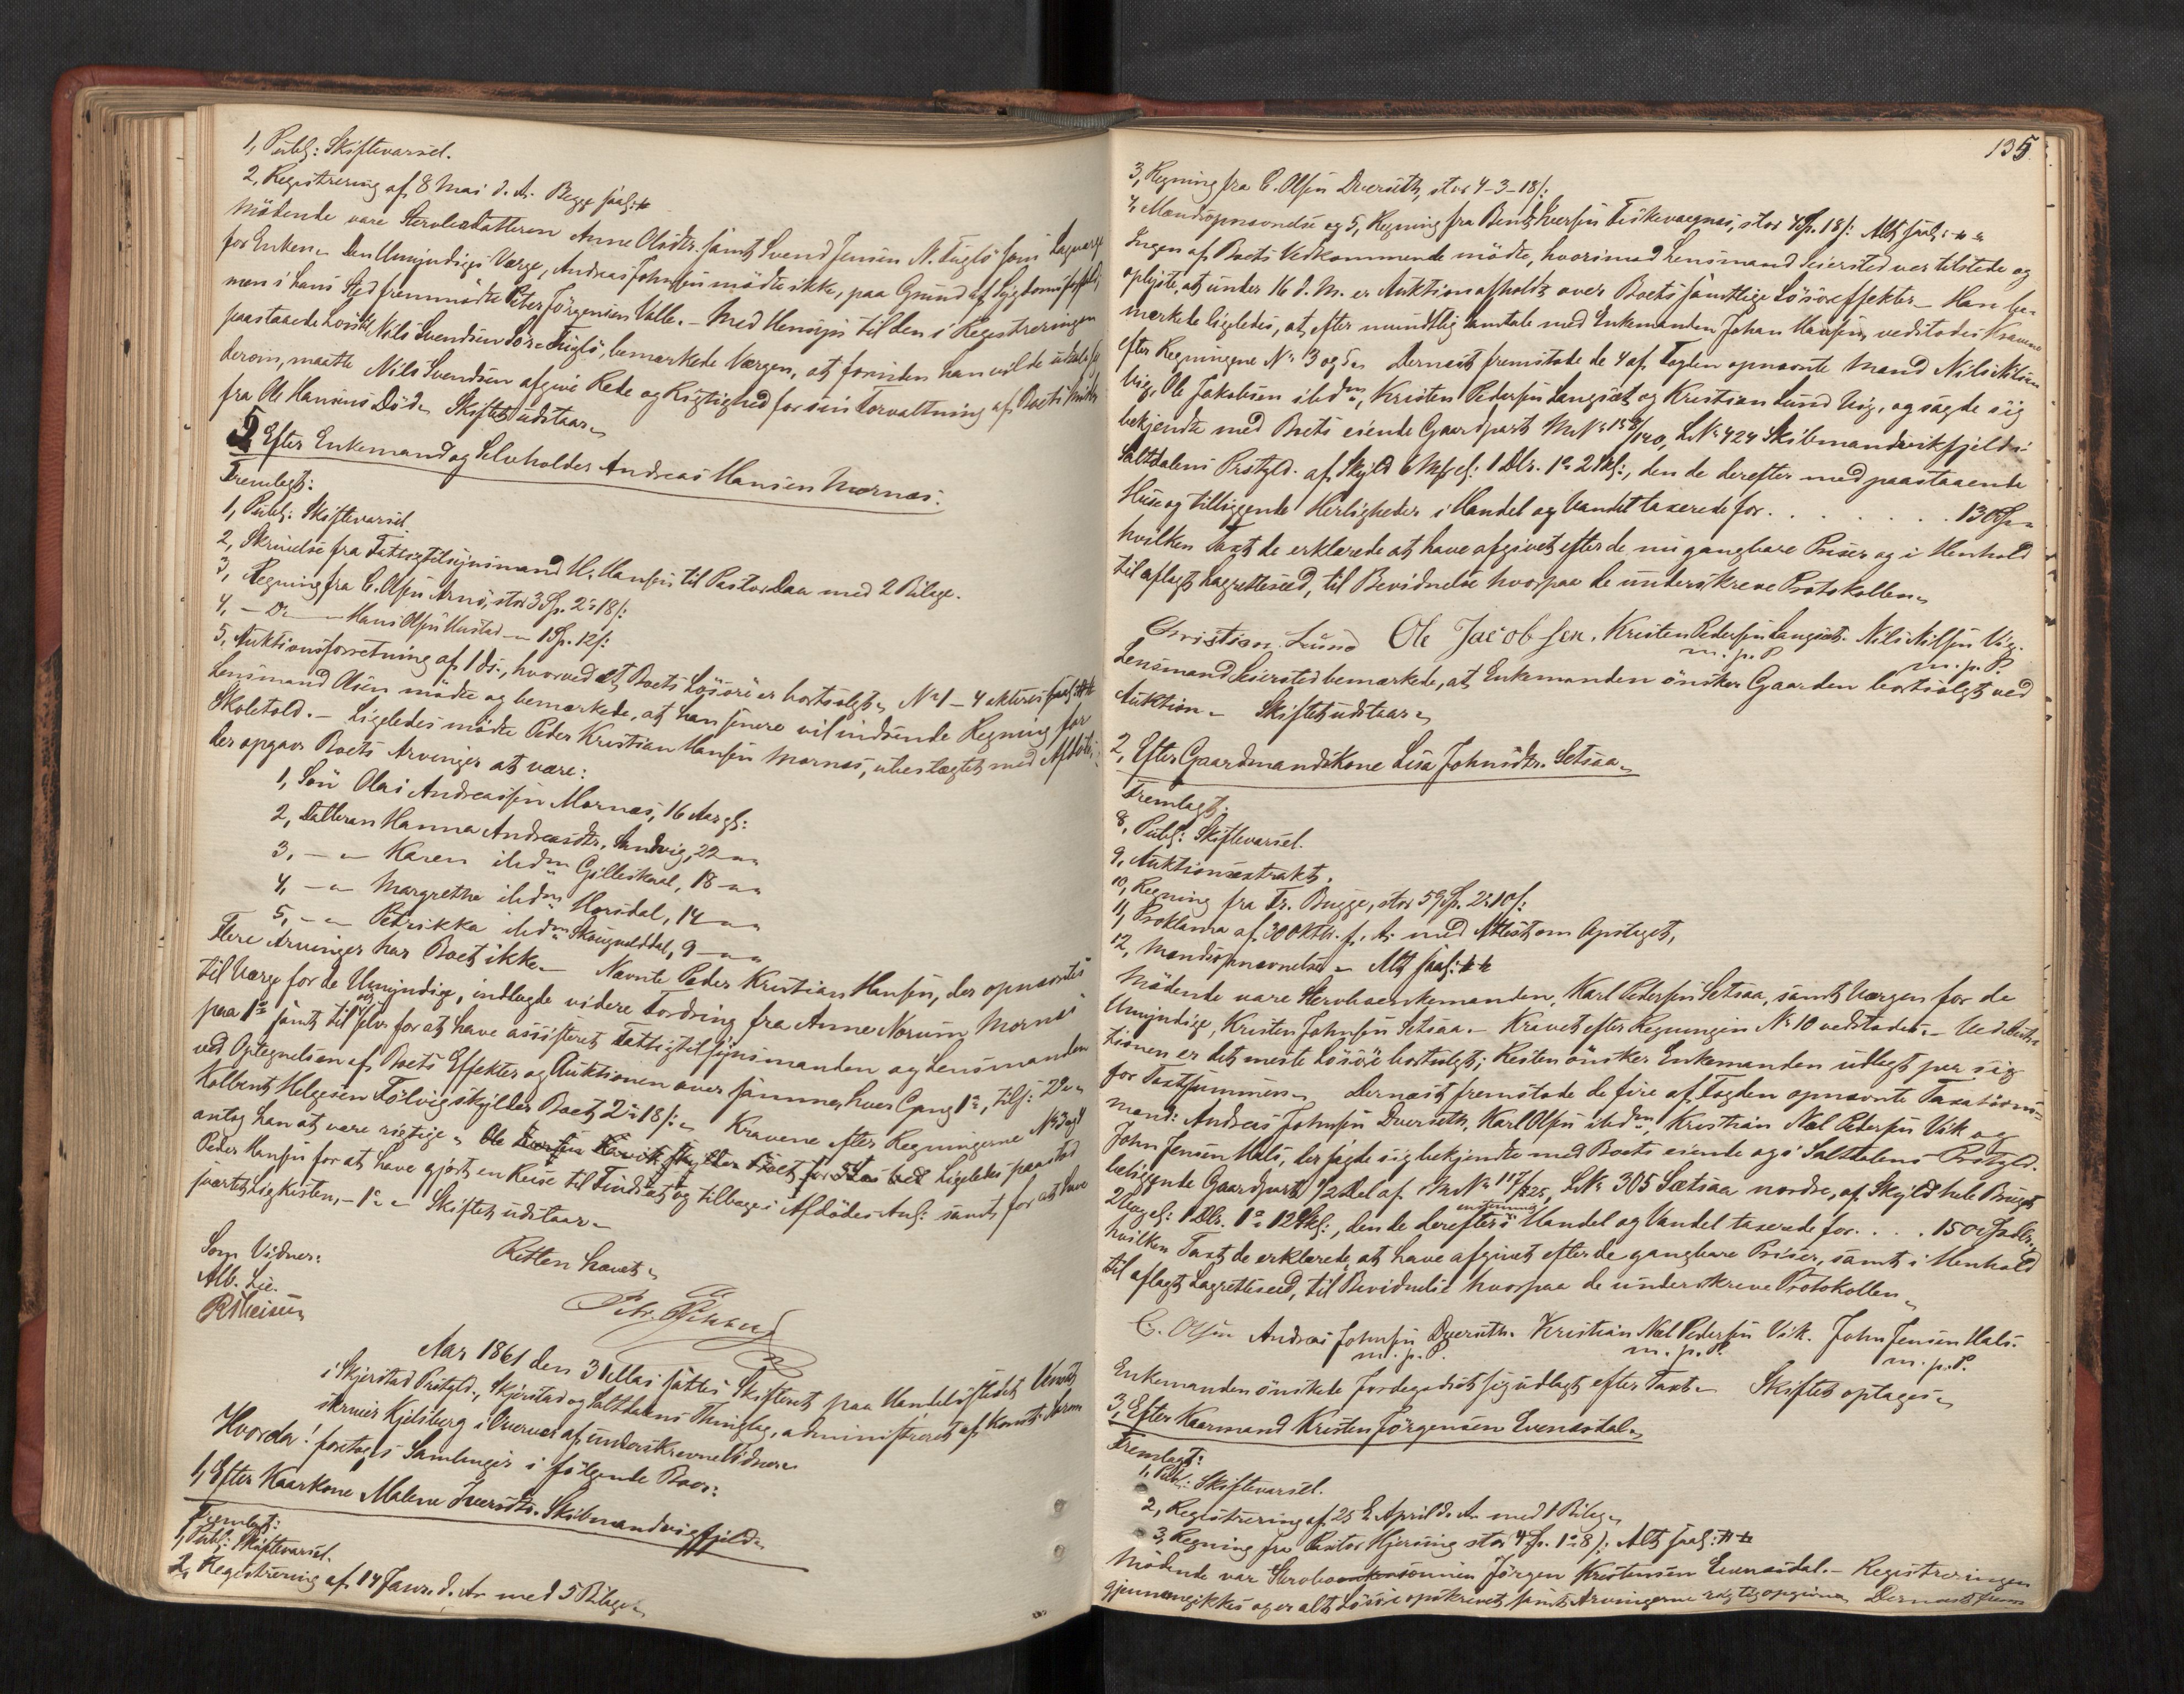 1, Publ: Skiftevarsel.
2, Registrering af 8 Mai d. A. Begge saal:
Mödende vare Stervbodatteren Anne Olsdtr. samt Svend Jensen N. Fuglö som Lagværge
for Enken. Den Umyndiges Værge, Andreas Johnsen mödte ikke, paa Grund af Sygdomsforfald,
men i hans Sted fremmödte Peter Jörgensen Valle. Med Hensyn til den i Registreringen
paastaaede Nils Svendsen Söre Fuglö, bemærkede Værgen, at forinden han vilde udtale sig
derom, maatte Nils Svendsen afgive Rede og Rigtighed for sin Forvaltning af Boets Midler
fra Ole Hansens Död. Skiftet udstaar.
5, Efter Enkemand og Selveholder Andreas Hansen Mornæs:
Fremlagt:
1, Publ: Skiftevarsel.
2, Skrivelse fra Fattigtilsynsmand H. Hansen til Pastor Daa med 2 Bilage.
3, Regning fra C. Olsen Arnö, stor 3 Sp. 2 18 s:
4, — Do — Hans Olsen Hustad — 1 Sp. 12 s:
5, Auktionsforretning af 1 ds., hvorved alt Boets Lösöre er bortsolgt. No 1 — 4 akteres saal:
Lensmand Olsen mödte og bemærkede, at han senere vil indsende Regning for
Skoletold. — Ligeledes mödte Peder Kristian Hansen Mornæs, ubeslægtet med Afdöde,
der opgav Boets Arvinger at være:
1, Sön Olai Andreassen Mornæs, 16 Aar gl:
2, Datteren Hanna Andreasdtr. Sandvig, 22 — "
3, — " — Karen ibdm Gilleskaal, 18 — "
4, — " — Margrethe ibdm Horsdal, 14 — "
5, — " — Petrikka ibdm 9 — "
Flere Arvinger har Boet ikke. — Nævnte Peder Kristian Hansen, der opnævntes
til Værge for de Umyndige, indlagde videre Fordring fra Anne Norum Mornæs
paa 1 samt til sig selv for at have assisteret Fattigtilsynsmanden og Lensmanden
ved Optegnelsen af Boets Effekter og Auktionen over samme, hver Gang 1, tils: 2
Kolbent Helgesen Tölvig skylder Boet 2 18 s: Kravene efter Regningerne No 3 og 4
antog han at være rigtige. Ligeledes paastod
Peder Hansen for at have gjort en Reise til Tindsæt og tilbage i Afdödes Anl: samt for at have
sværtet Ligkisten, — 1 — Skiftet udstaar.
Retten hævet.
Som Vidner:
Alb. Lie.
R Theisen
Aar 1861 den 31 Mai sattes Skifteret paa Handelsstedet Venset
i Skjerstad Prstgld., Skjerstad og Saltdalens Thinglag, administreret af Konst:
skriver Kjelsberg i Overvær af underskrevne Vidner.
Hvorda! foretoges Samlinger i fölgende Boer:
1, Efter Kaarkone Malene Iversdtr. Skibmandvigfjeld.
Fremlagt:
1, Publ: Skiftevarsel.
2, Registrering af 14 Janr. d. A. med 5 Bilage.
135
3, Regning fra C. Olsen Dverseth, stor 4-3-18 s:
4, Mandsopnævnelse og 5, Regning fra Bendt Iversen Fiskevaagnæs, stor 4 Sp. 18 s: Alt saal:
Ingen af Boets Vedkommende mödte, hvorimod Lensmand Seiersted var tilstede og
oplyste, at under 16 d. M. er Auktion afholdt over Boets samtlige Lösöreeffekter. Han be-
mærkede ligeledes, at efter mundtlig Samtale med Enkemanden Johan Hansen, vedstodes Kravene
efter Regningerne No 3 og 5. Dernæst fremstode de 4 af Fogden opnævnte Mænd Nils Nilsen
Vig, Ole Jakobsen ibdm, Kristen Pedersen Langsæt og Kristian Lund Vig, og sagde sig
bekjendte med Boets eiende Gaardpart M.No 158/140, L.No 424 Skibmandvikfjeld i
Saltdalens Prstgld. af Skyld 1 Dlr. 1 2 Skl:, den de derefter med paastaaende
Huse og tilliggende Herligheder i Handel og Vandel taxerede for . . . . . . . 130 Sp
hvilken Taxt de erklærede at have afgivet efter de nu gangbare Priser og i Henhold
til aflagt Lagrettesed, til Bevidnelse hvorpaa de underskreve Protokollen.
Christian Lund Ole Jacobsen. Kristen Pedersen Langsæt. Nils Nilsen Vig.
m. p. P. m. p. P.
Lensmand Seiersted bemærkede, at Enkemanden önsker Gaarden bortsolgt ved
Auktion. Skiftet udstaar.
2, Efter Gaardmandskone Lisa Johnsdtr. Setsaa.
Fremlagt:
8, Publ: Skiftevarsel.
9, Auktionsextrakt.
10, Regning fra Fr. Bugge, stor 59 Sp. 2 10 s:
11, Proklama af 30 Oktbr. f. A. med Attest om Opslaget,
12, Mandsopnævnelse. Alt saal:
Mödende vare Stervboenkemanden, Karl Pedersen Setsaa, samt Værgen for de
Umyndige, Kristen Johnsen Setsaa. Kravet efter Regningen No 10 vedstodes. Ved Auk-
tionen er det meste Lösöre bortsolgt; Resten önsker Enkemanden udlagt paa sig
for Taxtsummen. Dernæst fremstode de fire af Fogden opnævnte Taxations-
mænd: Andreas Johnsen Dverseth, Karl Olsen ibdm, Kristian Næl Pedersen Vik og
John Jensen Hals, der sagde sig bekjendte med Boets eiende og i Saltdalens Prstgld.
beliggende Gaardpart 1/2 Del af M.No 117/125, L.No 305 Sætsaa nordre, af Skyld hele Bruget
1 Dlr. 1 12 Skl:, den de derefter enstemmig i Handel og Vandel taxerede for . . . . 150 Spdlr.,
hvilken Taxt de erklærede, at have afgivet efter de gangbare Priser, samt i Henhold
til aflagt Lagrettesed, til Bevidnelse hvorpaa de underskreve Protokollen.
C. Olsen Andreas Johnsen Dverseth. Kristian Næl Pedersen Vik. John Jensen Hals.
m. p. P. m. p. P. m. p. P.
Enkemanden önskede Jordegodset sig udlagt efter Taxt. Skiftet optages.
3, Efter Kaarmand Kristen Jörgensen Evensdal.
Fremlagt:
1, Publ: Skiftevarsel.
2, Registrering af 25 April d. A. med 1 Bilag.
3, Regning fra Pastor Hjersing stor 4 Sp. 1 8 s: Alt saal:
Mödende var Stervbosönnen Jörgen Kristensen Evensdal. Registreringen
gjennemgikkes og er alt Lösöre opskrevet samt Arvingerne rigtig opgivne. Dernæst frem